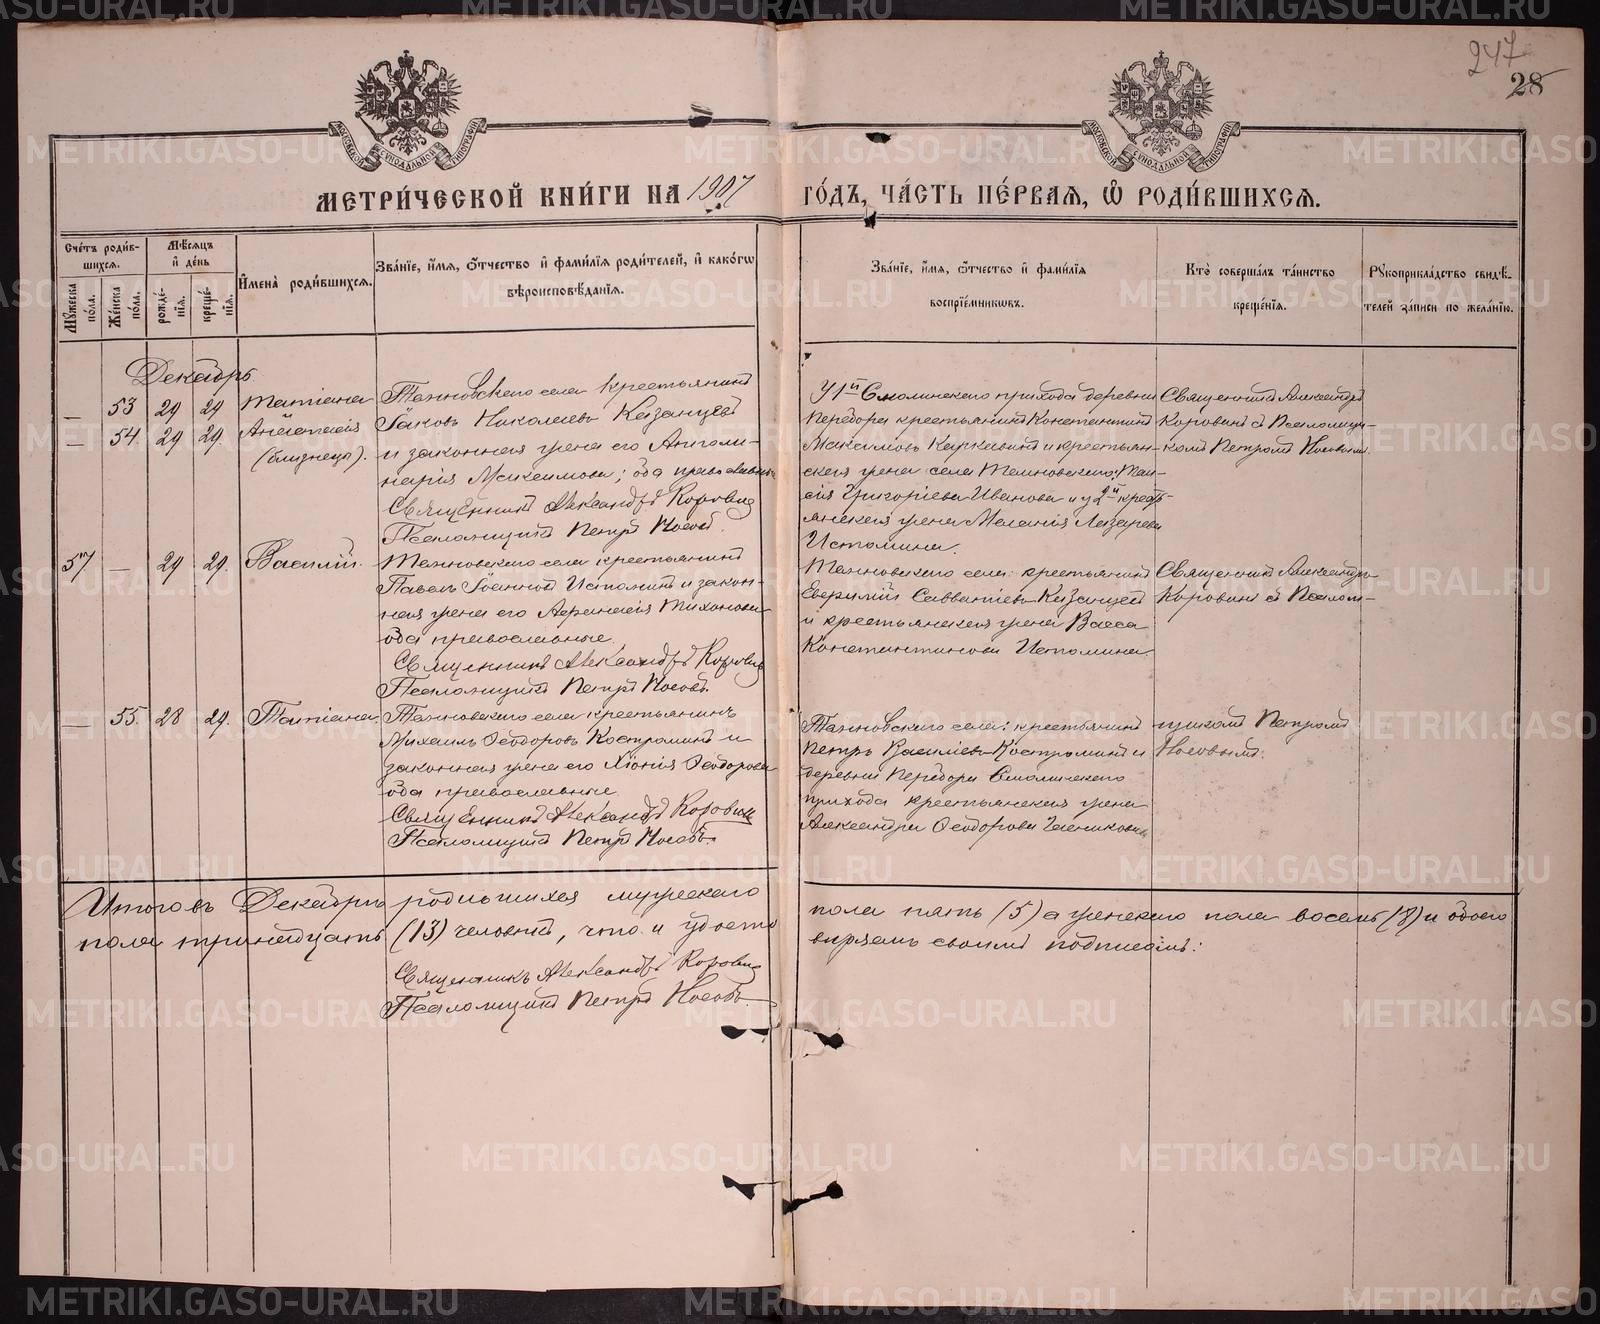 247
28
МОСКОВСКОЙ СѴНОДАЛЬНОЙ ТИПОГРАФІИ
МОСКОВСКОЙ СѴНОДАЛЬНОЙ ТИПОГРАФІИ
МЕТРИ́ЧЕСКОЙ КНИ́ГИ НА 1907 ГО́ДЪ, ЧА́СТЬ ПЕ́РВАЯ, Ѡ҆ РОДИ́ВШИХСЯ.
Сче́тъ роди́в-
шихся.
Мꙋ́жеска по́ла.
Же́нска по́ла.
Мѣ́сяцъ и҆ де́нь
рожде́-нїя.
креще́-нїя.
И҆мена̀ роди́вшихся.
Зва́нїе, и҆́мя, ѻ҆́тчество и҆ фами́лїя роди́телей, и҆ како́гѡ
вѣроисповѣ́данїя.
Зва́нїе, и҆́мя, ѻ҆́тчество и҆ фами́лїя
воспрїе́мникѡвъ.
Кто̀ соверша́лъ та́инство
креще́нїя.
Рꙋкоприкла́дство свидѣ́-
телей за́писи по жела́нїю.
Декабрь
— 53 29 29 Татіана
— 54 29 29. Анастасія
(близнецы).
села крестьянинъ
Іаковъ Николаевъ Казанцевъ
и законная жена его Аполи-
нарія Максимова; оба православные
Священникъ Александръ Коровинъ
Псаломщикъ Петръ Носовъ.
У 1й Смолинскаго прихода деревни
Передора крестьянинъ Константинъ
Максимовъ и крестьян-
ская жена села
Григоріева Иванова и у 2й кресть-
янская жена Меланія Лазарева
Истомина.
Священникъ Александръ
Коровинъ съ Псаломщи-
комъ Петромъ Носовымъ.
57 — 29 29. Василій.
села крестьянинъ
Павелъ Іоанновъ Истоминъ и закон-
ная жена его Афанасія Тихонова
оба православные
Священникъ Александръ Коровинъ
Псаломщикъ Петръ Носовъ.
села: крестьянинъ
Евфимій Савватіевъ Казанцевъ
и крестьянская жена Васса
Константинова Истомина.
Священникъ Александръ
Коровинъ съ Псалом-
— 55. 28 29. Татіана
села крестьянинъ
Михаилъ Ѳеодоровъ Костроминъ и
законная жена его Хіонія Ѳеодорова
оба православные
Священникъ Александръ Коровинъ
Псаломщикъ Петръ Носовъ.
села: крестьянинъ
Петръ Василіевъ Костроминъ и
деревни Передора Смолинскаго
прихода крестьянская жена
Александра Ѳеодорова
щикомъ Петромъ
Носовымъ.
Итого въ Декабрѣ родившихся мужескаго пола пять (5) а женскаго пола восемь (8) и обоего
пола тринадцать (13) человѣкъ, что и удосто вѣряемъ своимъ подписаніемъ:
Священникъ Александръ Коровинъ
Псаломщикъ Петръ Носовъ.
METRIKI.GASO-URAL.RU